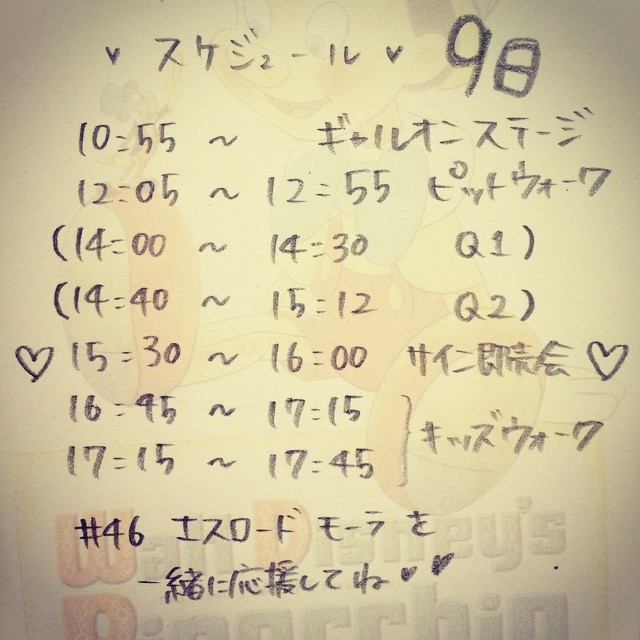 ♥ スケジュール ♥ 9日
10:55 ~ ギャルオンステージ
12:05 ~ 12:55 ピットウォーク
(14:00 ~ 14:30 Q1)
(14:40 ~ 15:12 Q2)
♡ 15:30 ~ 16:00 サイン即売会 ♡
16:45 ~ 17:15
17:15 ~ 17:45 キッズウォーク
#46 エスロード モーラを
一緒に応援してね ♥ ♥
Walt Disney's
Pinocchio